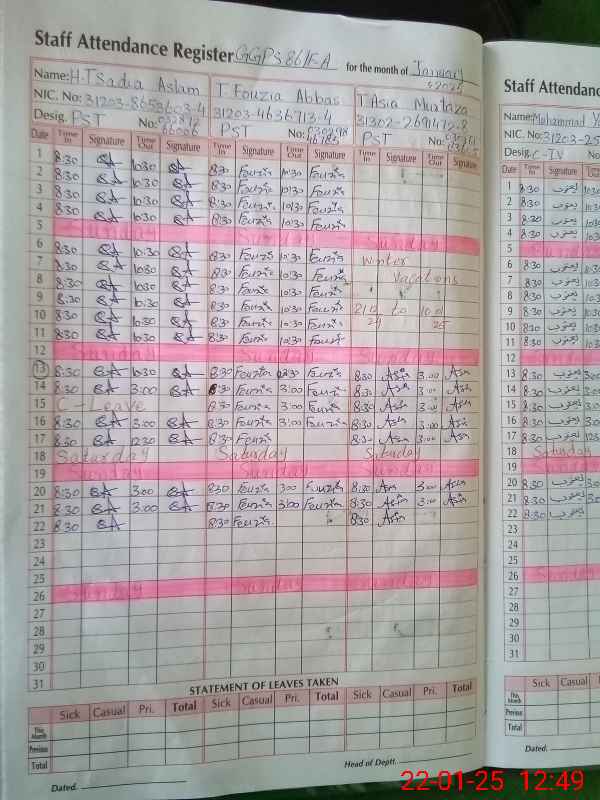 Staff Attendance Register GGPS 86/F.A for the month of January 2025
Name: H.T Sadia Aslam T. Fouzia Abbas T Asia Murtaza
NIC. No: 31203-8653603-4 31203-4636713-4 31302-2691475-8
Desig. PST No: PST No: PST No:
Date Time In Signature Time Out Signature Time In Signature Time Out Signature Time In Signature Time Out Signature
1 8:30 SA 10:30 SA 8:30 Fouzia 10:30 Fouzia
2 8:30 SA 10:30 SA 8:30 Fouzia 10:30 Fouzia
3 8:30 SA 10:30 SA 8:30 Fouzia 10:30 Fouzia
4 8:30 SA 10:30 SA 8:30 Fouzia 10:30 Fouzia
5 Sunday Sunday Sunday
6 8:30 SA 10:30 SA 8:30 Fouzia 10:30 Fouzia
7 8:30 SA 10:30 SA 8:30 Fouzia 10:30 Fouzia winter
8 8:30 SA 10:30 SA 8:30 Fouzia 10:30 Fouzia Vacations
9 8:30 SA 10:30 SA 8:30 Fouzia 10:30 Fouzia
10 8:30 SA 10:30 SA 8:30 Fouzia 10:30 Fouzia to
11 8:30 SA 10:30 SA 8:30 Fouzia 10:30 Fouzia
12 Sunday Sunday Sunday
13 8:30 SA 10:30 SA 8:30 Fouzia Fouzia 8:30 Asia 3:00 Asia
14 8:30 SA 3:00 SA 8:30 Fouzia 3:00 Fouzia 8:30 Asia 3:00 Asia
15 C-Leave 8:30 Fouzia 3:00 Fouzia 8:30 Asia 3:00 Asia
16 8:30 SA 3:00 SA 8:30 Fouzia 3:00 Fouzia 8:30 Asia 3:00 Asia
17 8:30 SA 12:30 SA 8:30 Fouzia 8:30 Asia 3:00 Asia
18 Saturday Saturday Saturday
19 Sunday Sunday Sunday
20 8:30 SA 3:00 SA 8:30 Fouzia 3:00 Fouzia 8:30 Asia 3:00 Asia
21 8:30 SA 3:00 SA 8:30 Fouzia 3:00 Fouzia 8:30 Asia 3:00 Asia
22 8:30 SA 8:30 Fouzia 8:30 Asia
23
24
25
26 Sunday Sunday Sunday
27
28
29
30
31
STATEMENT OF LEAVES TAKEN
Sick Casual Pri. Total Sick Casual Pri. Total Sick Casual Pri. Total
This Month
Previous
Total
Dated. Head of Deptt.
Staff Attendanc
Name: Mohammad
NIC. No: 31203-25
Desig.
Date Time In Signature Time Out
1 8:30 یعقوب
2 8:30 یعقوب
3 8:30 یعقوب
4 8:30 یعقوب
5
6 8:30 یعقوب
7 8:30 یعقوب
8 8:30 یعقوب
9 8:30 یعقوب
10 8:30 یعقوب
11 8:30 یعقوب
12 Sunday
13 8:30 یعقوب
14 8:30 یعقوب
15 8:30 یعقوب
16 8:30 یعقوب
17 8:30 یعقوب
18 Saturday
19 Sunday
20 8:30 یعقوب
21 8:30 یعقوب
22 8:30 یعقوب
23
24
25
26 Sunday
27
28
29
30
31
Sick Casual
This Month
Previous
Total
Dated.
22-01-25 12:49